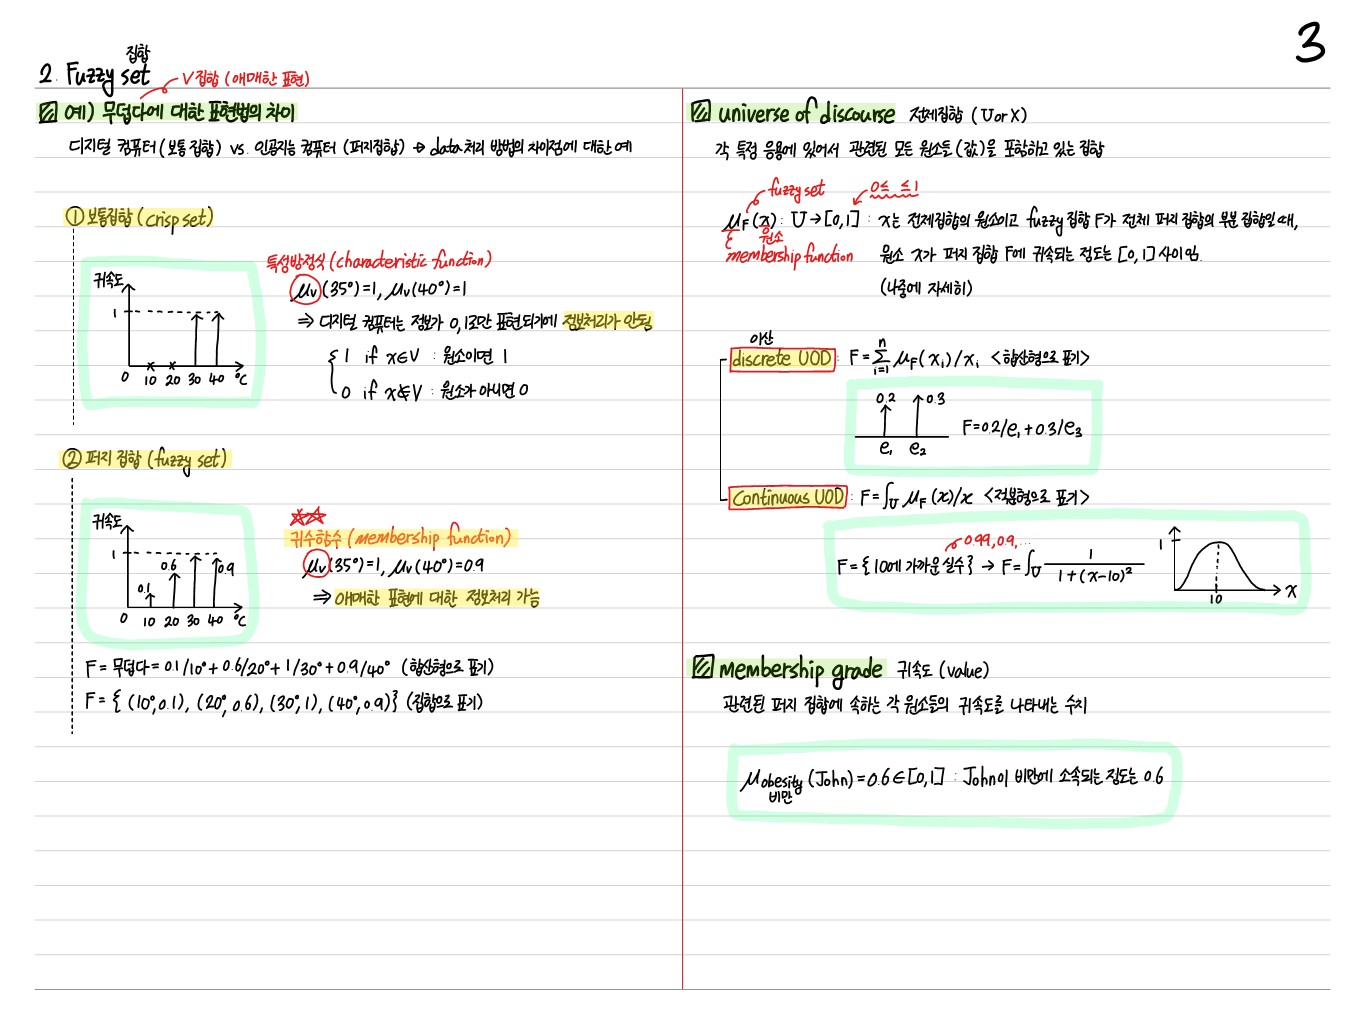 3
집합
2. Fuzzy set
V집합 (애매한 표현)
예) 무덥다에 대한 표현법의 차이
디지털 컴퓨터(보통 집합) vs. 인공지능 컴퓨터 (퍼지집합) → data처리 방법의 차이점에 대한 예
① 보통집합 (crisp set)
귀속도
1
0 10 20 30 40 °C
특성방정식 (characteristic function)
μv(35°)=1, μv(40°)=1
⇒ 디지털 컴퓨터는 정보가 0, 1로만 표현되기에 정보처리가 안됨
{ 1 if x∈V : 원소이면 1
0 if x∉V : 원소가 아니면 0
② 퍼지 집합 (fuzzy set)
귀속도
1
0.1 0.6 0.9
0 10 20 30 40 °C
☆☆
귀속함수 (membership function)
μv(35°)=1, μv(40°)=0.9
⇒ 애매한 표현에 대한 정보처리 가능
F = 무덥다 = 0.1/10° + 0.6/20° + 1/30° + 0.9/40° (합산형으로 표기)
F = { (10°, 0.1), (20°, 0.6), (30°, 1), (40°, 0.9)} (집합으로 표기)
universe of discourse 전체집합 (U or X)
각 특정 응용에 있어서 관련된 모든 원소들(값)을 포함하고 있는 집합
fuzzy set 0≤ ≤1
μF(x) : U→[0,1] : x는 전체집합의 원소이고 fuzzy 집합 F가 전체 퍼지 집합의 부분 집합일 때,
원소
membership function 원소 x가 퍼지 집합 F에 귀속되는 정도는 [0,1] 사이임.
(나중에 자세히)
이산
discrete UOD : F = Σ(i=1, n) μF(xi)/xi <합산형으로 표기>
0.2 0.3
e1 e2
F=0.2/e1+0.3/e3
Continuous UOD : F=∫U μF(x)/x <적분형으로 표기>
0.99, 0.9, ...
F={10에 가까운 실수} → F=∫U 1/1+(x-10)²
1
10 x
membership grade 귀속도 (value)
관련된 퍼지 집합에 속하는 각 원소들의 귀속도를 나타내는 수치
μobesity (John) = 0.6 ∈ [0,1] : John이 비만에 소속되는 정도는 0.6
비만